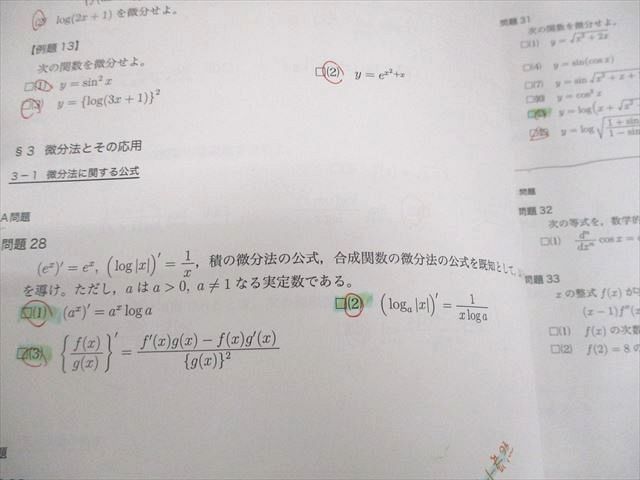 (2) log(2x+1) を微分せよ.
【例題 13】
次の関数を微分せよ.
□(1) y = sin² x
□(2) y = e^{x²+x}
□(3) y = {log(3x+1)}²
§3 微分法とその応用
3−1 微分法に関する公式
A問題
問題 28
(e^x)' = e^x, (log|x|)' = 1/x, 積の微分法の公式, 合成関数の微分法の公式を既知として,
を導け. ただし, a は a > 0, a ≠ 1 なる実定数である.
□(1) (a^x)' = a^x log a
□(2) (log_a |x|)' = 1/(x log a)
□(3) {f(x)/g(x)}' = (f'(x)g(x) − f(x)g'(x))/{g(x)}²
問題 31
次の関数を微分せよ.
□(1) y = √(x²+2x)
□(4) y = sin(cos x)
□(7) y = sin √(x²+x+
y = cos³ x
y = log(x + √x²
y = log √(1+sin / 1−sin
問題
問題 32
次の等式を, 数学的
□(1) dⁿ/dxⁿ cos x = c
問題 33
x の整式 f(x) が
(x−1)f''(x
□(1) f(x) の次数
□(2) f(2) = 8 の